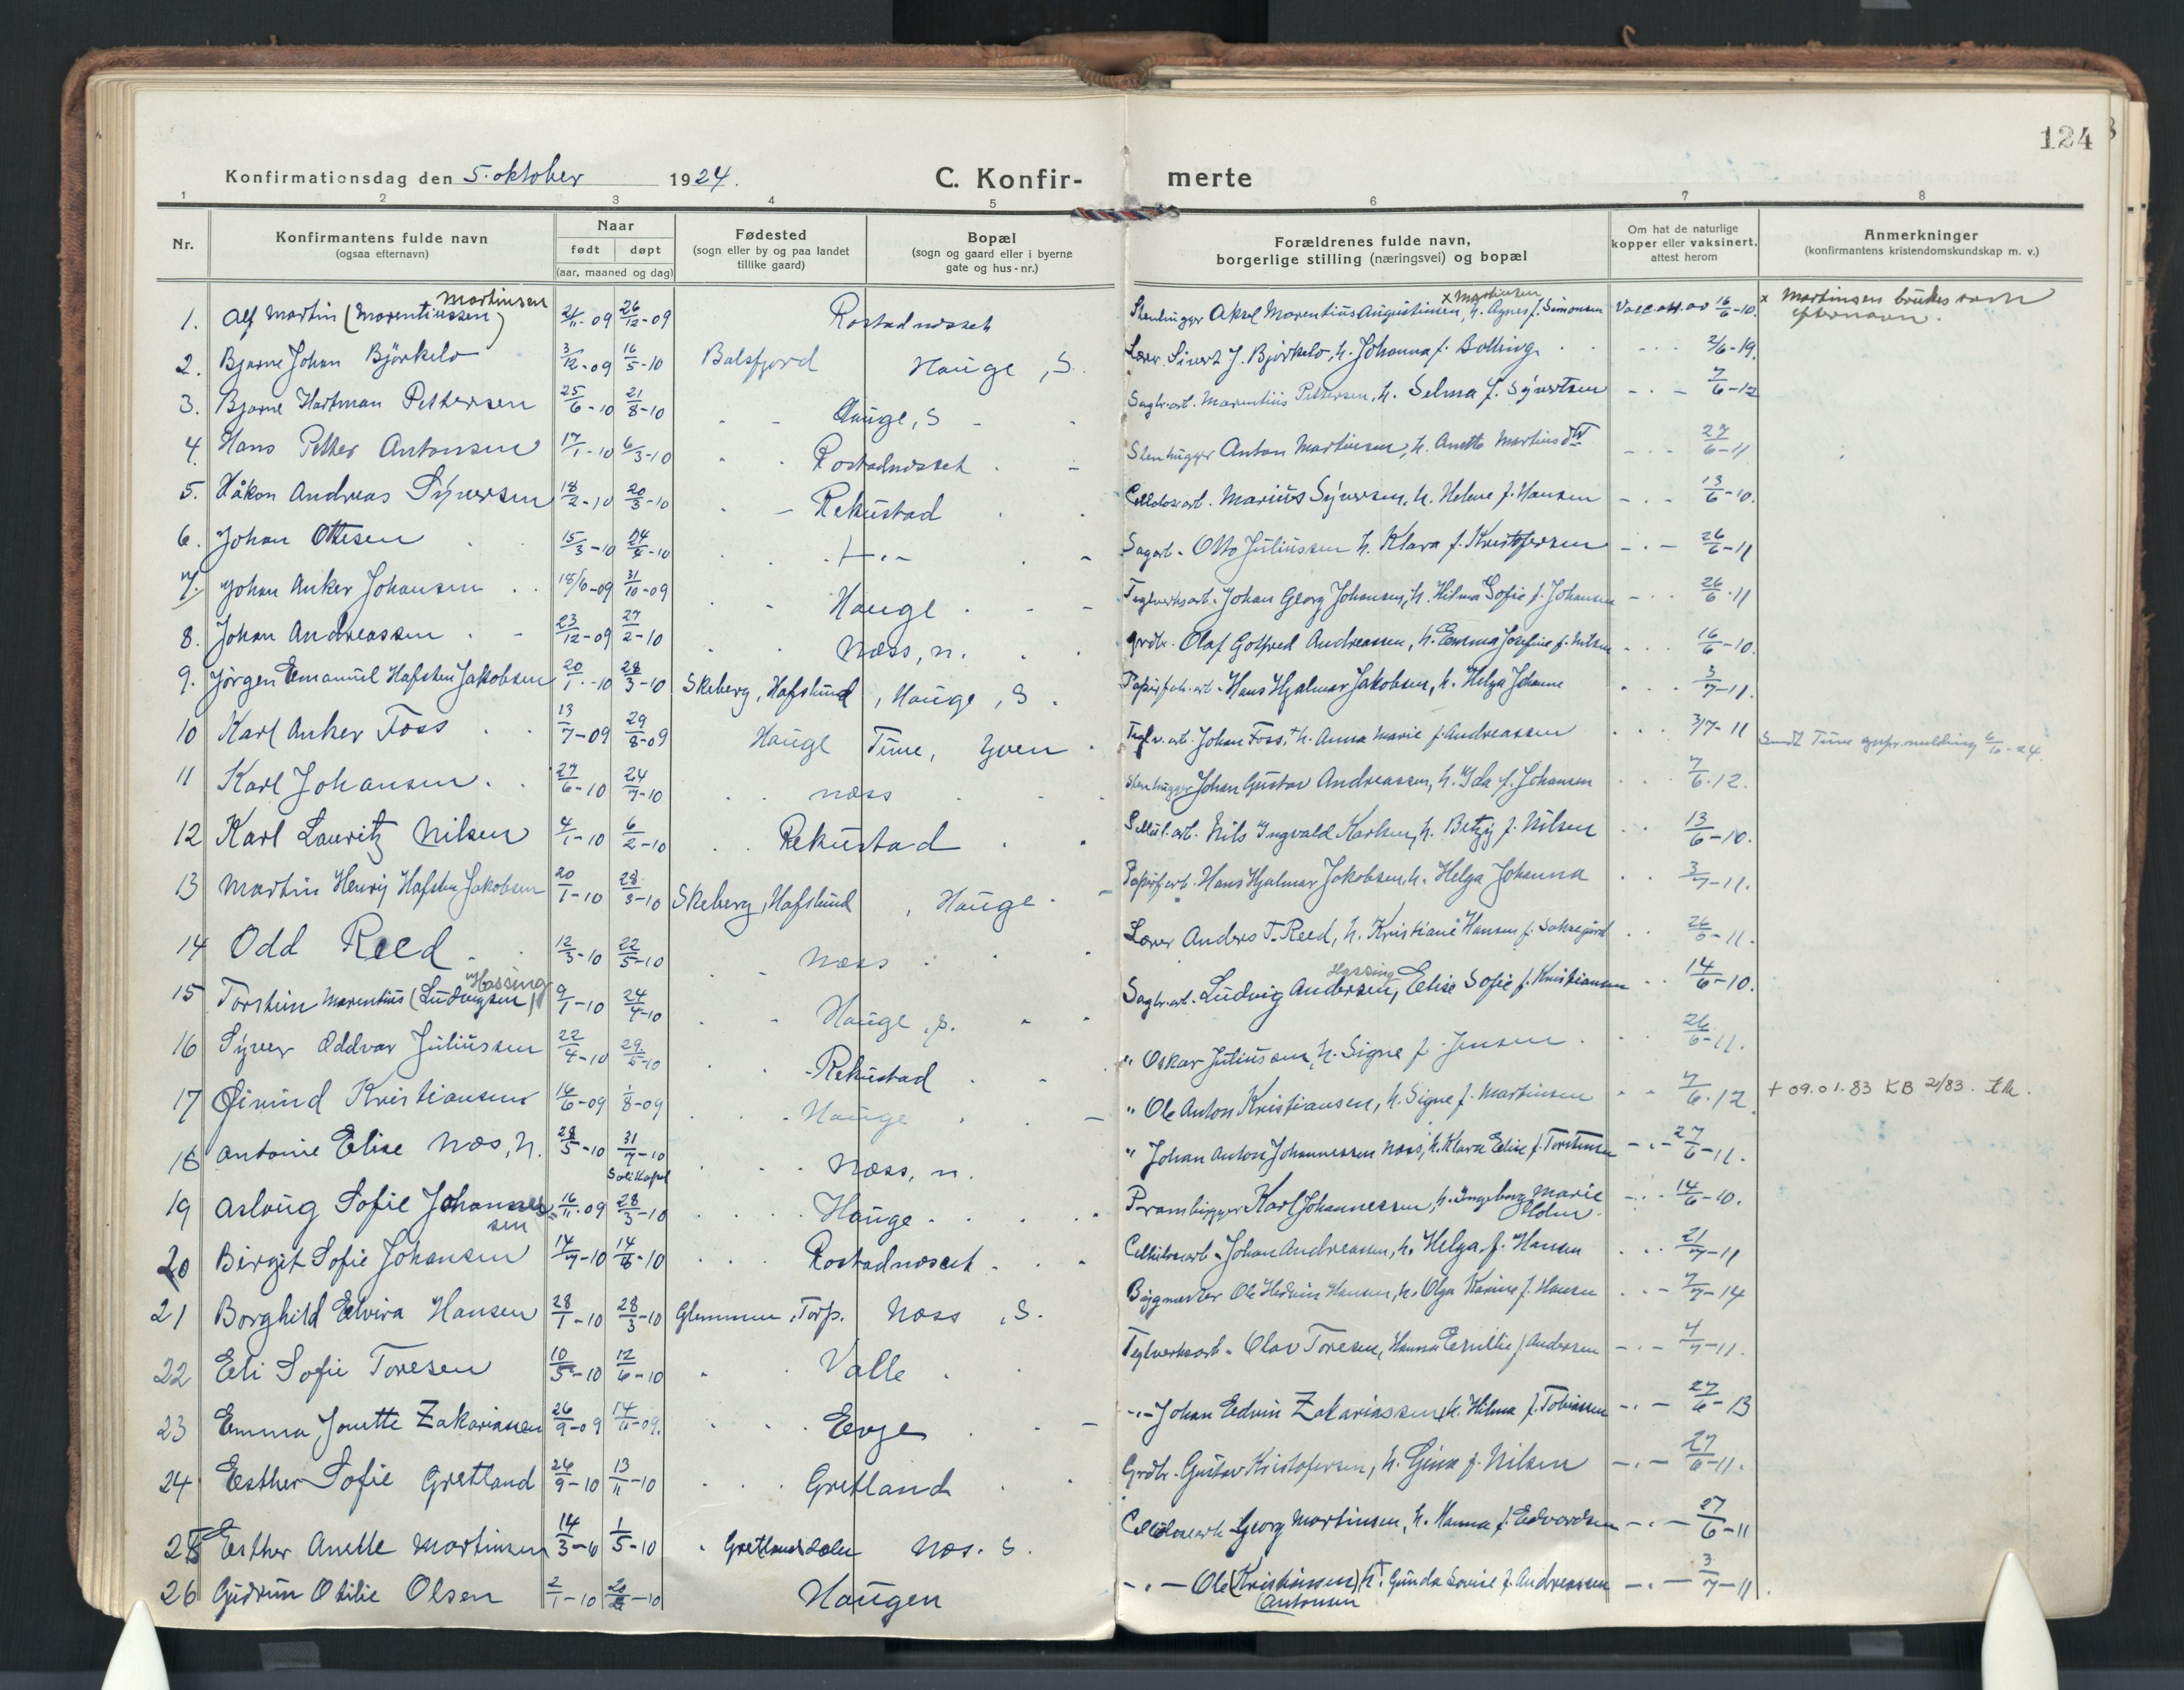 124
Konfirmationsdag den 5. oktober 1924.
C. Konfir- merte
1 2 3 4 5 6 7 8
Nr.
Konfirmantens fulde navn
(ogsaa efternavn)
Naar
født døpt
(aar, maaned og dag)
Fødested
(sogn eller by og paa landet
tillike gaard)
Bopæl
(sogn og gaard eller i byerne
gate og hus-nr.)
Forældrenes fulde navn,
borgerlige stilling (næringsvei) og bopæl
Om hat de naturlige
kopper eller vaksinert,
attest herom
Anmerkninger
(konfirmantens kristendomskundskap m. v.)
Martinsen x Martinsen
1. Alf Martin (Marentiussen) 2/11-09 26/12-09 Rostadnesset Stenhugger Aksel Marentius Augustinsen, h. Agnes f. Simonsen Vacc. att. av 16/6-10. x Martinsen brukes som
efternavn.
2. Bjarne Johan Björkelo 3/12-09 16/5-10 Balsfjord Hauge, S. Lærer Sivert J. Björkelo, h. Johanna f. Bolling 2/6-19.
3. Bjarne Hartman Pettersen 25/6-10 21/8-10 Hauge, S Sagbr.arb. Marentius Pettersen, h. Selma f. Syvertsen 7/6-12
4. Hans Petter Antonsen 17/1-10 6/3-10 Rostadnesset Stenhugger Anton Martinsen, h. Anette Martinsdtr 27/6-11
5. Håkon Andreas Syversen 18/2-10 20/3-10 Rekustad Cellulosearb. Marius Syversen, h. Helene f. Hansen 13/6-10.
6. Johan Ottesen 15/3-10 24/4-10 -"- Sagarb. Otto Juliussen h. Klara f. Kristofersen 26/6-11
7. Johan Anker Johansen 18/6-09 31/10-09 Hauge Teglverksarb. Johan Georg Johansen, h. Hilma Sofie f. Johansen 26/6-11
8. Johan Andreassen 23/12-09 27/2-10 Næss, n. Grdbr. Olaf Gotfred Andreassen, h. Emma Josefine f. Nilsen 16/6-10.
9. Jörgen Emanuel Hafsten Jakobsen 20/1-10 28/3-10 Skeberg, Hafslund, Hauge, S. Papirfab.arb. Hans Hjalmar Jakobsen, h. Helga Johanne 3/7-11.
10 Karl Anker Foss 13/7-09 29/8-09 Hauge Tune, Yven Teglv.arb. Johan Foss, + h. Anna Marie f. Andreassen 3/7-11 Sendt Tune melding 6/10-24.
11 Karl Johansen 27/6-10 24/7-10 Næss Stenhugger Johan Gustav Andreassen, h. Ida f. Johansen 7/6-12.
12 Karl Lauritz Nilsen 4/1-10 6/2-10 Rekustad Cellul.arb. Nils Ingvald Karlsen, h. Betzy f. Nilsen 13/6-10.
13 Martin Henry Hafsten Jakobsen 20/1-10 28/3-10 Skeberg, Hafslund, Hauge Papirf.arb. Hans Hjalmar Jakobsen, h. Helga Johanna 3/7-11.
14 Odd Reed 12/3-10 22/5-10 Næss Lærer Anders T. Reed, h. Kristiane Hansen f. 26/5-11.
Hassing Hassing
15 Torstein Marentius (Ludvigsen) 9/1-10 24/4-10 Hauge, s. Sagbr.arb. Ludvig Andersen, Elise Sofie f. Kristiansen 14/6-10.
16 Syver Oddvar Juliussen 22/4-10 29/5-10 Rekustad " Oskar Juliussen, h. Signe f. Jensen 26/6-11.
17 Øivind Kristiansen 16/6-09 1/8-09 Hauge " Ole Anton Kristiansen, h. Signe f. Martinsen 7/6-12 + 09.01.83 KB 2/83.
18 Antonie Elise Næs, n. 28/5-10 31/7-10 Næss, n. " Johan Anton Johannessen Næss, h. Klara Elise f. Torstensen 27/6-11.
Soli Kapel
19 Aslaug Sofie Johannes- 16/11-09 28/3-10 Hauge Prambygger Karl Johannessen, h. Ingeborg Marie 14/6-10.
sen Holm
20 Birgit Sofie Johansen 14/7-10 14/8-10 Rostadnesset Cellulosearb. Johan Andreassen, h. Helga f. Hansen 21/7-11
21 Borghild Elvira Hansen 28/1-10 28/3-10 Glemmen, Torp. Næss, S. Byggmester Ole Hansen, h. Olga Karine f. Hansen 7/7-14
22 Eli Sofie Toresen 10/5-10 12/6-10 Valle Teglverksarb. Olav Toresen, Hanna Emilie f. Andersen 4/7-11.
23 Emma Jonette Zakariassen 26/9-09 14/11-09. Evje -"- Johan Edvin Zakariassen, h. Hilma f. Tobiassen 27/6-13
24 Esther Sofie Gretland 26/9-10 13/11-10 Gretland Grdbr. Gustav Kristofersen, h. Gina f. Nilsen 27/6-11.
25 Esther Anette Martinsen 14/3-10 1/5-10 Gretlandsdalen Næs. S. Cellulosearb. Georg Martinsen, h. Hanna f. Edvardsen 27/6-11
26 Gudrun Otilie Olsen 2/1-10 20/2-10 Haugen -"- Ole (Kristiansen) h. Gunda Lovise f. Andreassen 3/7-11.
(Antonsen